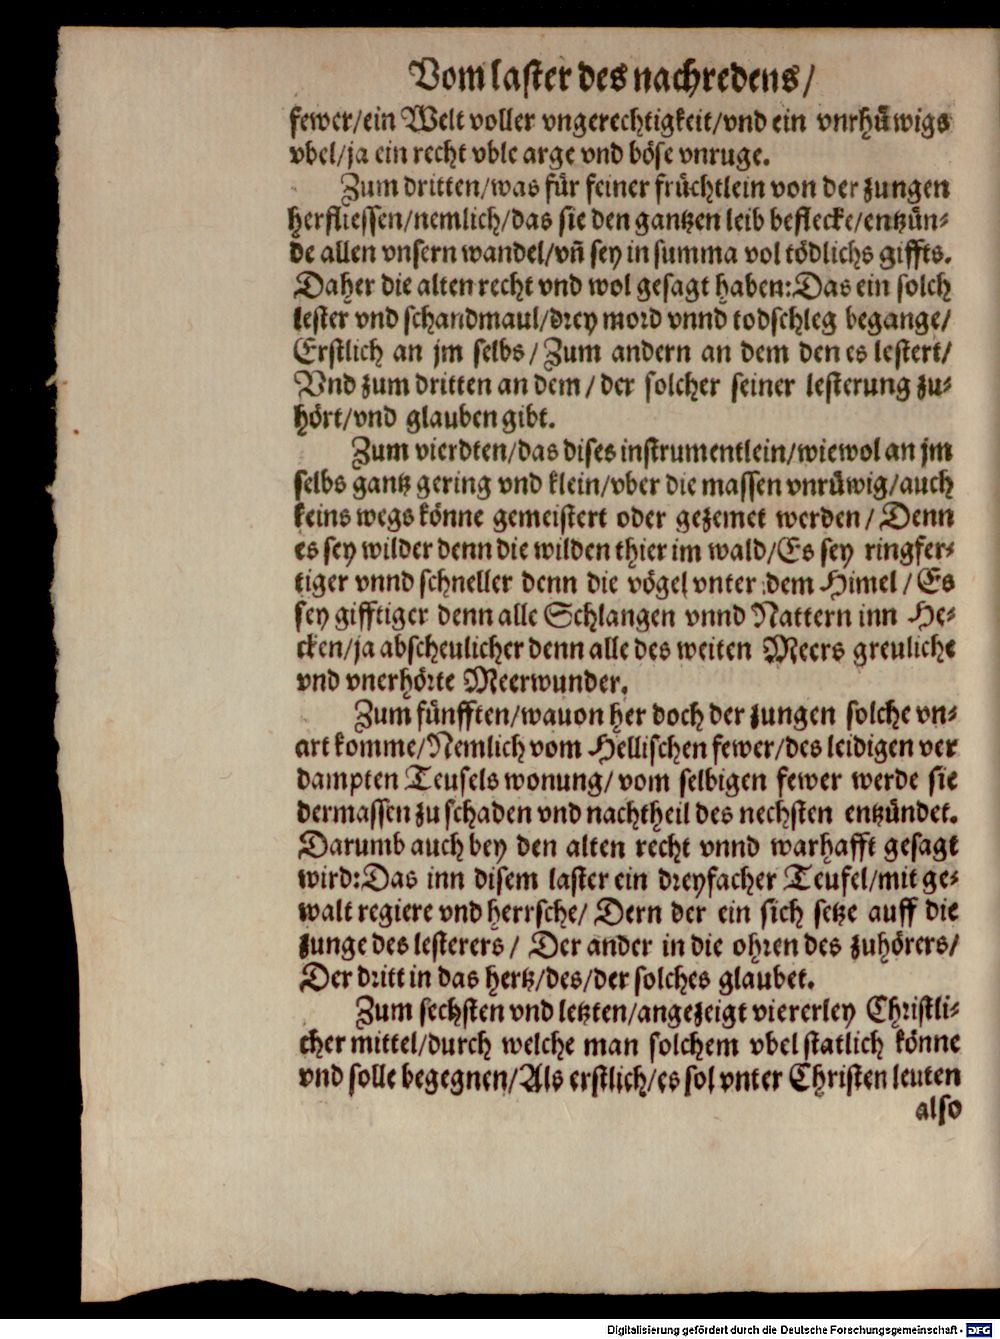 Vom laster des nachredens/
fewer/ein Welt voller vngerechtigkeit/vnd ein vnrhüwigs
vbel/ja ein recht vble arge vnd böse vnruge.
Zum dritten/was für feiner früchtlein von der zungen
herfliessen/nemlich/das sie den gantzen leib beflecke/entzün-
de allen vnsern wandel/vñ sey in summa vol tödlichs giffts.
Daher die alten recht vnd wol gesagt haben:Das ein solch
lester vnd schandmaul/drey mord vnnd todschleg begange/
Erstlich an jm selbs/Zum andern an dem den es lestert/
Vnd zum dritten an dem/der solcher seiner lesterung zu-
hört/vnd glauben gibt.
Zum vierdten/das dises instrumentlein/wiewol an jm
selbs gantz gering vnd klein/vber die massen vnrüwig/auch
keins wegs könne gemeistert oder gezemet werden/Denn
es sey wilder denn die wilden thier im wald/Es sey ringfer-
tiger vnnd schneller denn die vögel vnter dem Himel/Es
sey gifftiger denn alle Schlangen vnnd Nattern inn He-
cken/ja abscheulicher denn alle des weiten Meers greuliche
vnd vnerhörte Meerwunder.
Zum fünfften/wauon her doch der zungen solche vn-
art komme/Nemlich vom Hellischen fewer/des leidigen ver
dampten Teufels wonung/vom selbigen fewer werde sie
dermassen zu schaden vnd nachtheil des nechsten entzündet.
Darumb auch bey den alten recht vnnd warhafft gesagt
wird:Das inn disem laster ein dreyfacher Teufel/mit ge-
walt regiere vnd herrsche/Dern der ein sich setze auff die
zunge des lesterers/Der ander in die ohren des zuhörers/
Der dritt in das hertz/des/der solches glaubet.
Zum sechsten vnd letzten/angezeigt viererley Christli-
cher mittel/durch welche man solchem vbel statlich könne
vnd solle begegnen/Als erstlich/es sol vnter Christen leuten
also
Digitalisierung gefördert durch die Deutsche Forschungsgemeinschaft - DFG